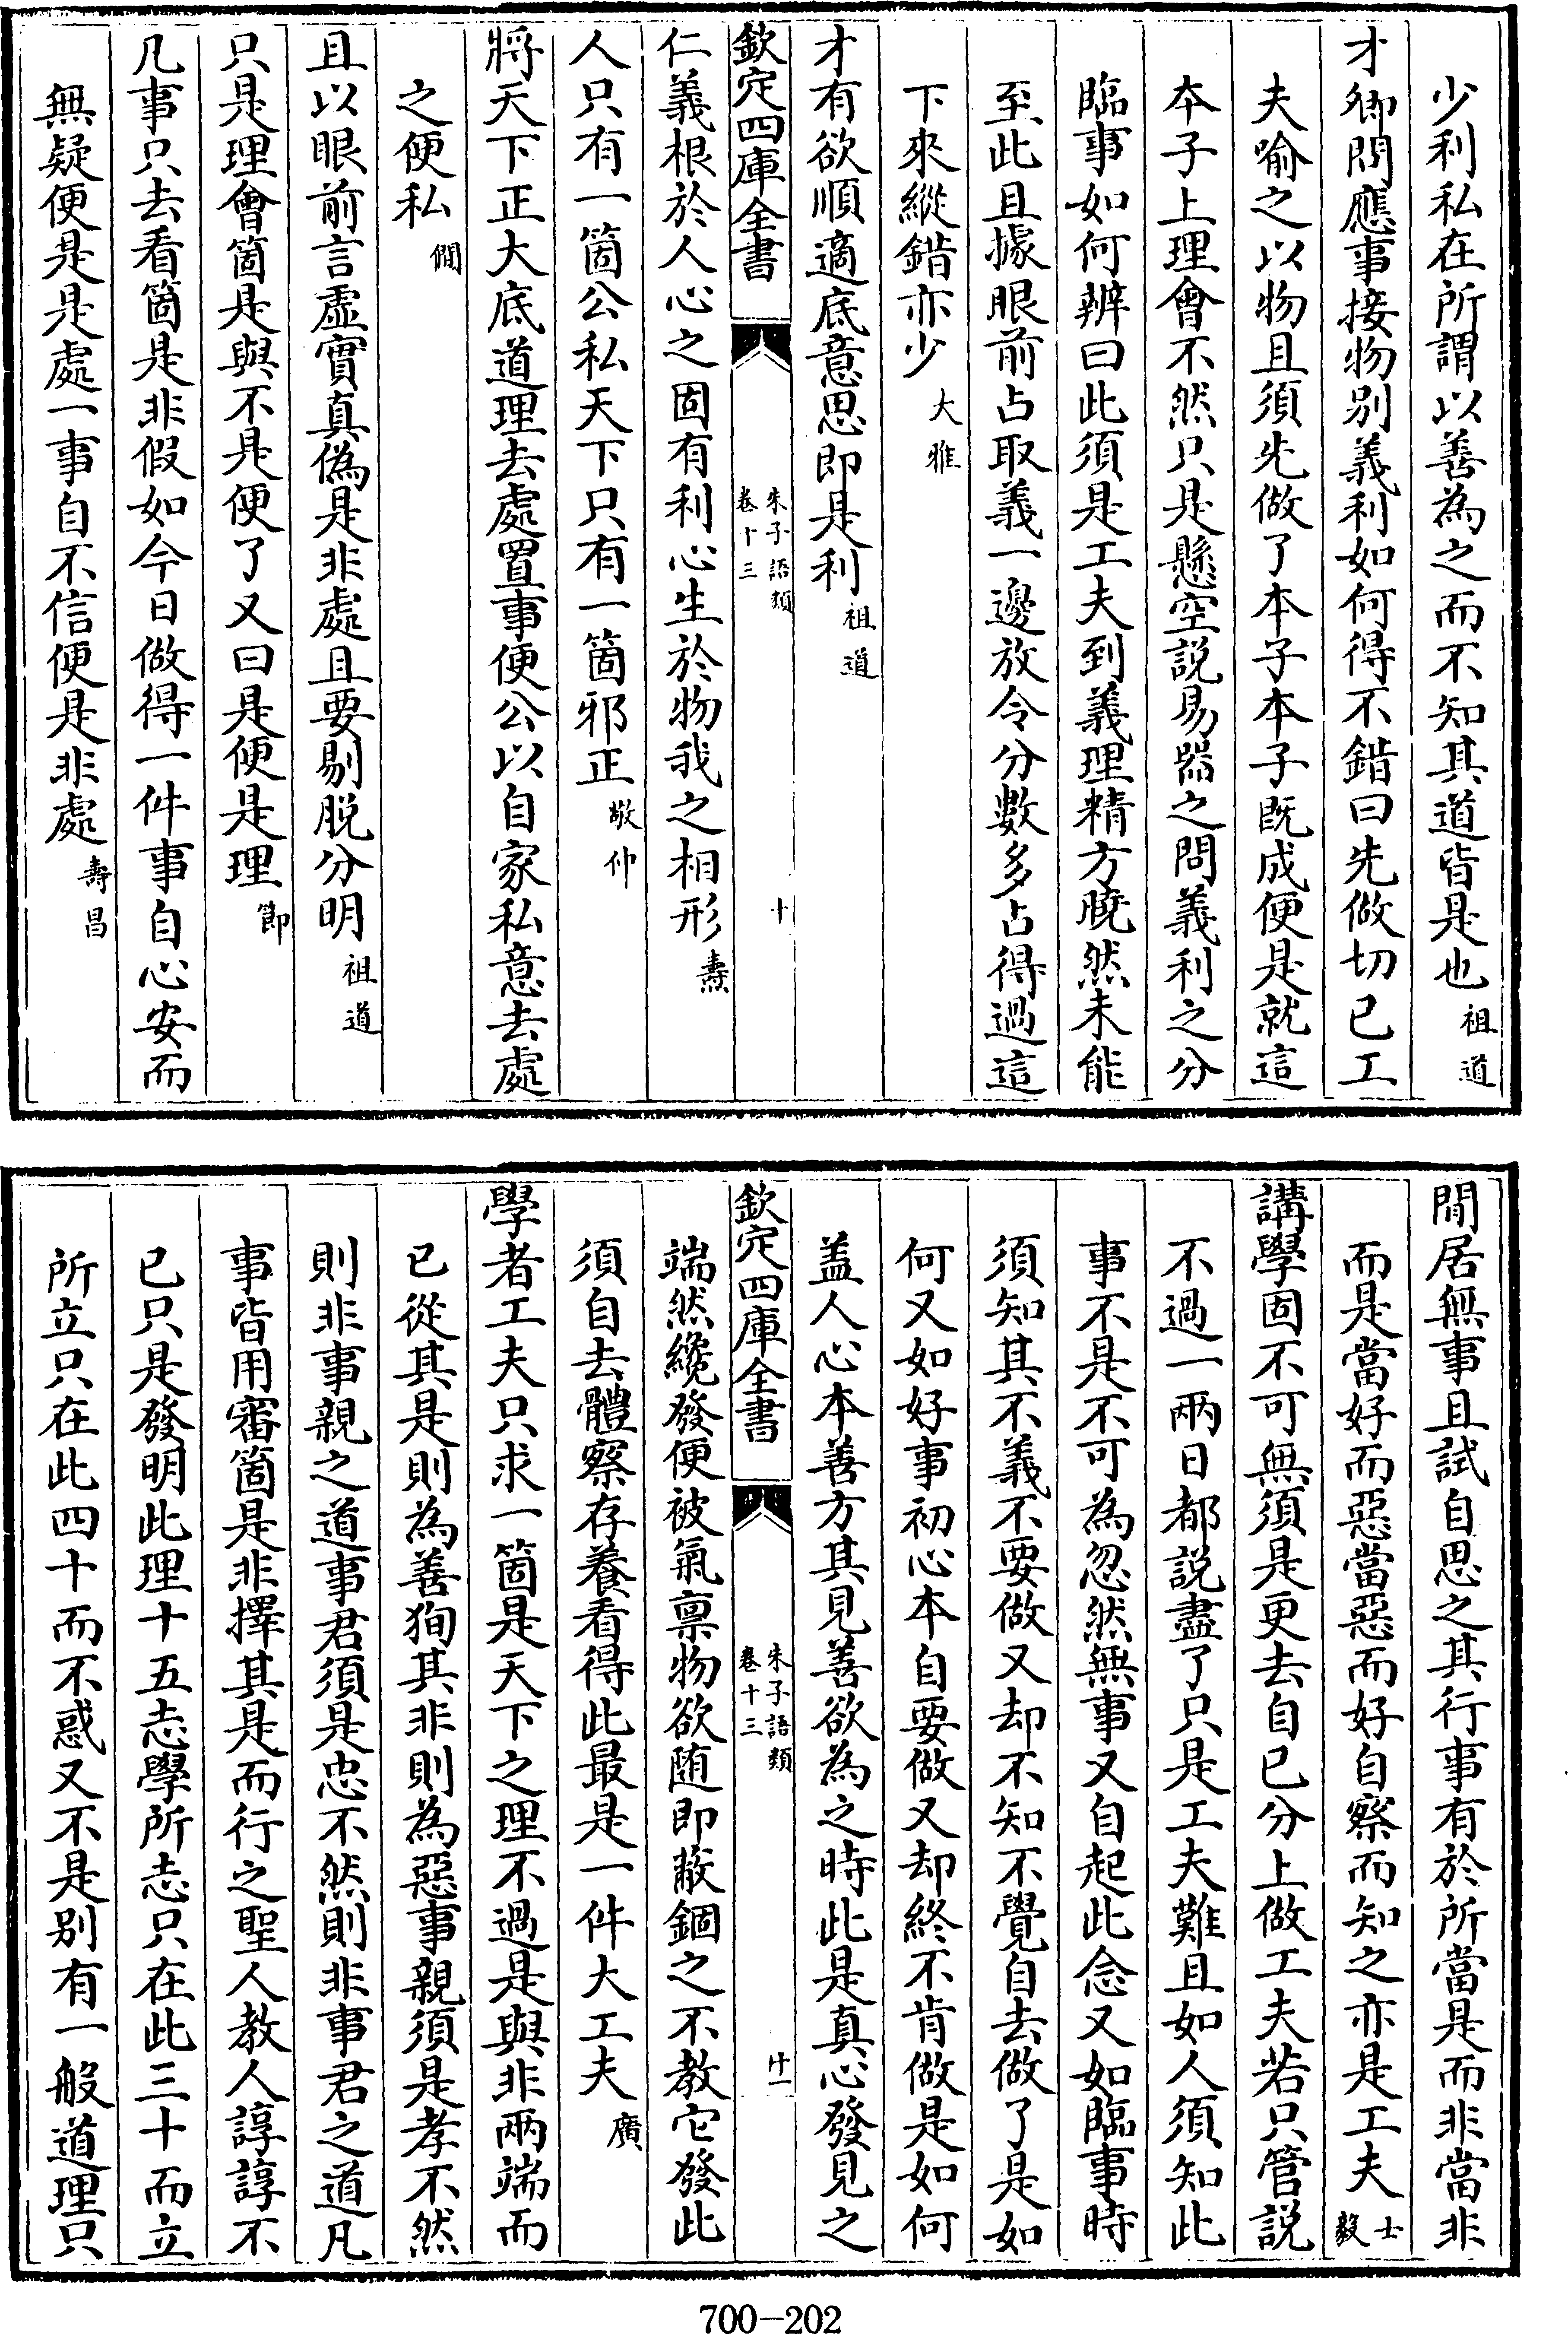 少利私在所謂以善為之而不知其道皆是也祖道
才卿問應事接物别義利如何得不錯曰先做切已工
夫喻之以物且須先做了本子本子既成便是就這
本子上理會不然只是懸空説易器之問義利之分
臨事如何辨曰此須是工夫到義理精方曉然未能
至此且據眼前占取義一邊放令分數多占得過這
下來縱錯亦少大雅
才有欲順適底意思即是利祖道
欽定四庫全書
朱子語類
卷十三
十
仁義根於人心之固有利心生於物我之相形燾
人只有一箇公私天下只有一箇邪正敬仲
將天下正大底道理去處置事便公以自家私意去處
之便私僩
且以眼前言虛實真偽是非處且要剔脱分明祖道
只是理會箇是與不是便了又曰是便是理節
凡事只去看箇是非假如今日做得一件事自心安而
無疑便是是處一事自不信便是非處壽昌
閒居無事且試自思之其行事有於所當是而非當非
而是當好而惡當惡而好自察而知之亦是工夫士毅
講學固不可無須是更去自已分上做工夫若只管説
不過一兩日都説盡了只是工夫難且如人須知此
事不是不可為忽然無事又自起此念又如臨事時
須知其不義不要做又却不知不覺自去做了是如
何又如好事初心本自要做又却終不肯做是如何
盖人心本善方其見善欲為之時此是真心發見之
欽定四庫全書
朱子語類
卷十三
十一
端然纔發便被氣禀物欲随即蔽錮之不教它發此
須自去體察存養看得此最是一件大工夫廣
學者工夫只求一箇是天下之理不過是與非兩端而
已從其是則為善狥其非則為惡事親須是孝不然
則非事親之道事君須是忠不然則非事君之道凡
事皆用審箇是非擇其是而行之聖人教人諄諄不
已只是發明此理十五志學所志只在此三十而立
所立只在此四十而不惑又不是别有一般道理只
700-202